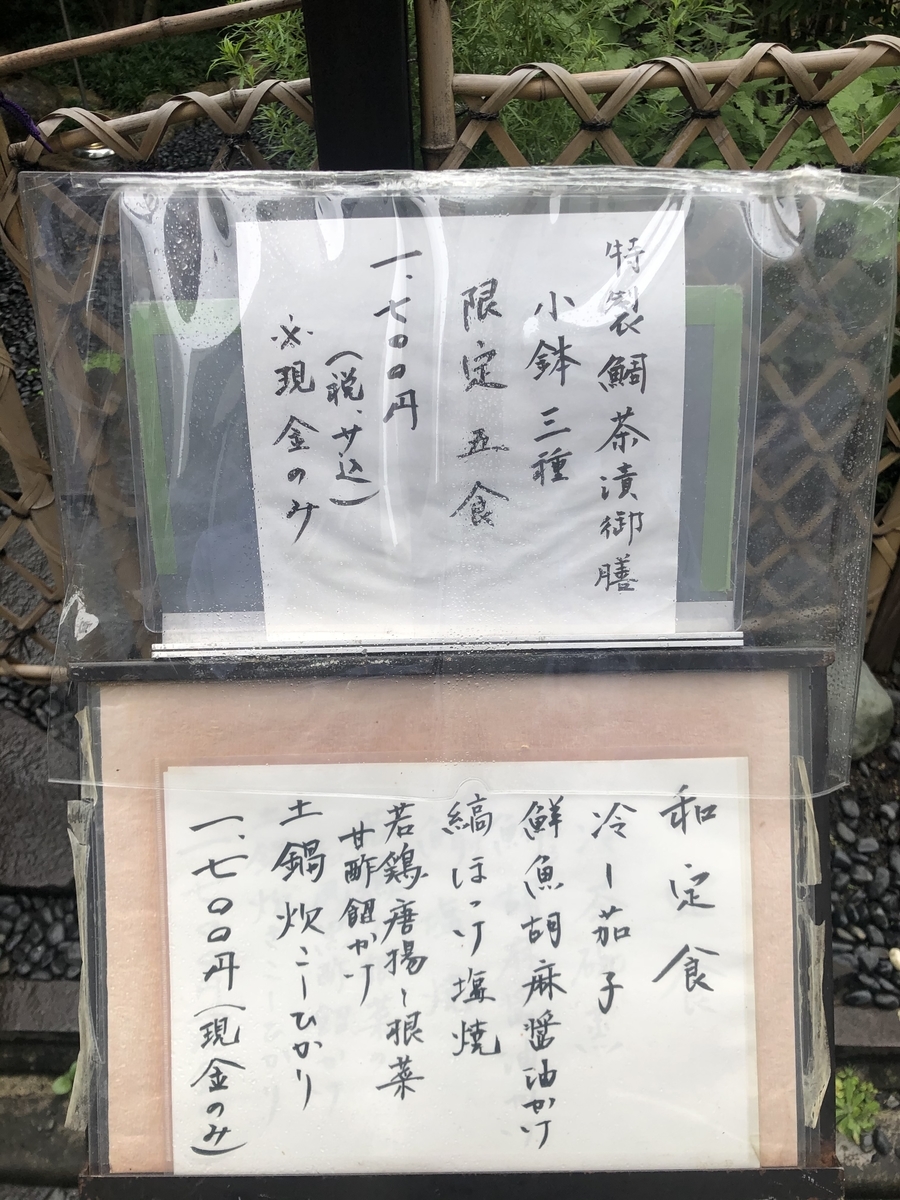 特製鯛茶漬御膳
小鉢三種
限定五食
一、七〇〇円
（税、サ込）
※現金のみ
和定食
冷し茄子
鮮魚胡麻醤油かけ
縞ほっけ塩焼
若鶏唐揚と根菜
甘酢餡かけ
土鍋炊こしひかり
一、七〇〇円（現金のみ）